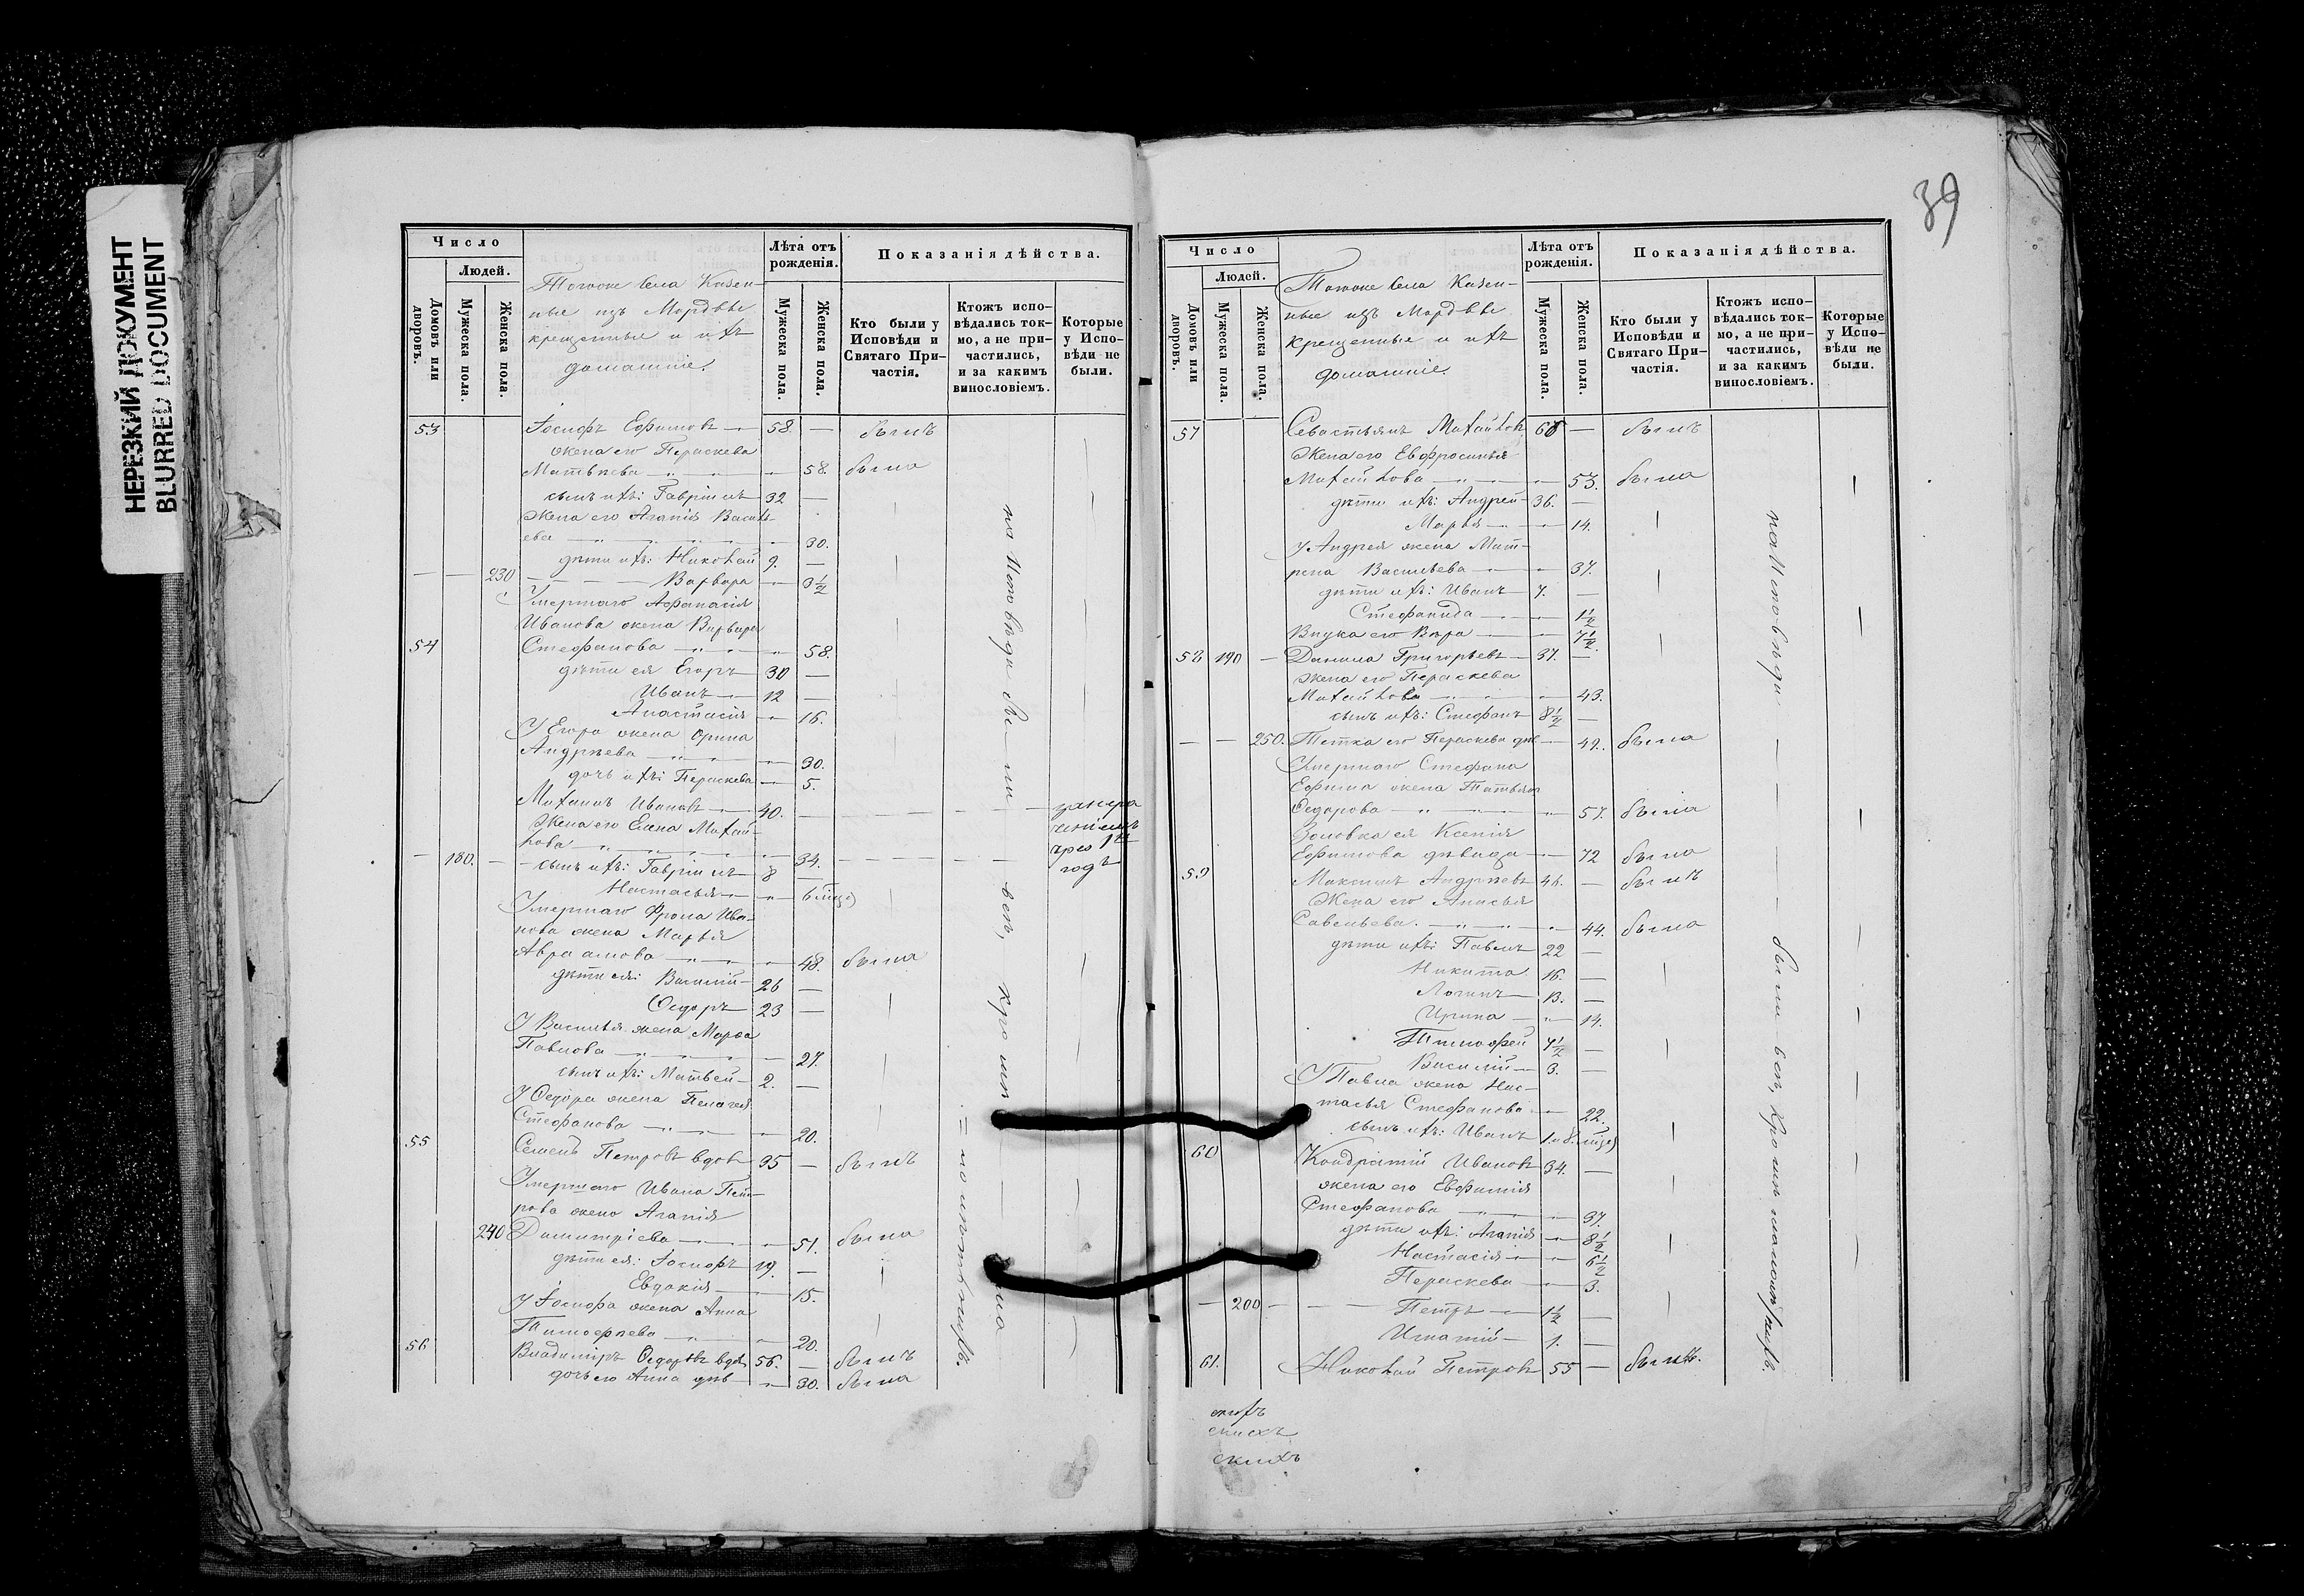 НЕРЕЗКИЙ ДОКУМЕНТ
BLURRED DOCUMENT
Число
Людей.
Домовъ или дворовъ.
Мужеска пола.
Женска пола.
Тогоже села Казен-
ные изъ Мордвы
крещенные и ихъ
домашніе.
Лѣта отъ рожденія.
Мужеска пола.
Женска пола.
Показанія дѣйства.
Кто были у Исповѣди и Святаго При-частія.
Ктожъ испо-вѣдались ток-мо, а не при-частились, и за какимъ винословіемъ.
Которые у Испо-вѣди не были.
53 Іосифъ Ефимовъ 58. — былъ
жена его Параскева
Матвѣева 58. была
сынъ ихъ: Гавріилъ 32 —
Жена его Агапія Василь-
ева 30.
дѣти ихъ: Николай 9. —
230 Варвара 3½
Умершаго Афанасія
Иванова жена Варвара
54 Стефанова 58.
дѣти ея Егоръ 30 —
Иванъ 12 —
Анастасія 16.
У Егора жена Орина
Андреева 30.
дочь ихъ: Параскева 5.
Михаилъ Ивановъ 40.
Жена его Елена Михай-
лова 34.
180. сынъ ихъ: Гавріилъ 8 —
Настасья 6
годъ
Умершаго Фрола Ива-
нова жена Марья
Авраамова 48. была
дѣти ея: Василій 26 —
Ѳедоръ 23 —
У Василья жена Марѳа
Павлова 27.
сынъ ихъ: Матвей 2. —
У Ѳедора жена Пелагея
Стефанова 20.
55 Семенъ Петровъ вдовъ 35 — былъ
Умершаго Ивана Пет-
рова жена Агапія
240 Димитріева 51. была
дѣти ея: Іосифъ 19. —
Евдокія 15.
У Іосифа жена Анна
Тимоѳеева 20.
56 Владиміръ Ѳедоровъ вдов 56. — былъ
дочь его Анна дѣв 30. была
на Исповѣди были всѣ, кромѣ
39
Число
Людей.
Домовъ или дворовъ.
Мужеска пола.
Женска пола.
Тогоже села Казен-
ные изъ Мордвы
крещенные и ихъ
домашніе.
Лѣта отъ рожденія.
Мужеска пола.
Женска пола.
Показанія дѣйства.
Кто были у Исповѣди и Святаго При-частія.
Ктожъ испо-вѣдались ток-мо, а не при-частились, и за какимъ винословіемъ.
Которые у Испо-вѣди не были.
57 Севастьянъ Михайлов — былъ
Жена его Евфросинья
Михайлова 53. была
дѣти ихъ: Андрей 36. —
Марья 14.
У Андрея жена Мат-
рена Васильева 37.
дѣти ихъ: Иванъ 7. —
Стефанида 1½
Внука его Вѣра 7½.
58 190 — Данила Григорьевъ 37. —
Жена его Параскева
Михайлова 43.
сынъ ихъ: Стефанъ 8½ —
250. Тетка его Параскева дѣв 49. была
Умершаго Стефана
Ефимова жена Татьяна
Ѳедорова 57. была
Золовка ея Ксенія
Ефимова дѣвица 72 была
59 Максимъ Андреевъ 44. — былъ
Жена его Анисья
Савельева. 44. была
дѣти ихъ: Павелъ 22 —
Никита 16. —
Логинъ 13. —
Ирина 14.
Тимоѳей 7½ —
Василій 3. —
У Павла жена Нас-
тасья Стефанова 22.
сынъ ихъ: Иванъ 1. и 8.
60 Кондратій Ивановъ 34. —
жена его Евфимія
Стефанова 37.
дѣти ихъ: Агапія 8½
Настасія 6½
Параскева 3.
200 Петръ 1½ —
Игнатій 1. —
61. Николай Петровъ 55 — былъ.
на Исповѣди были всѣ, кромѣ малолѣтнихъ.